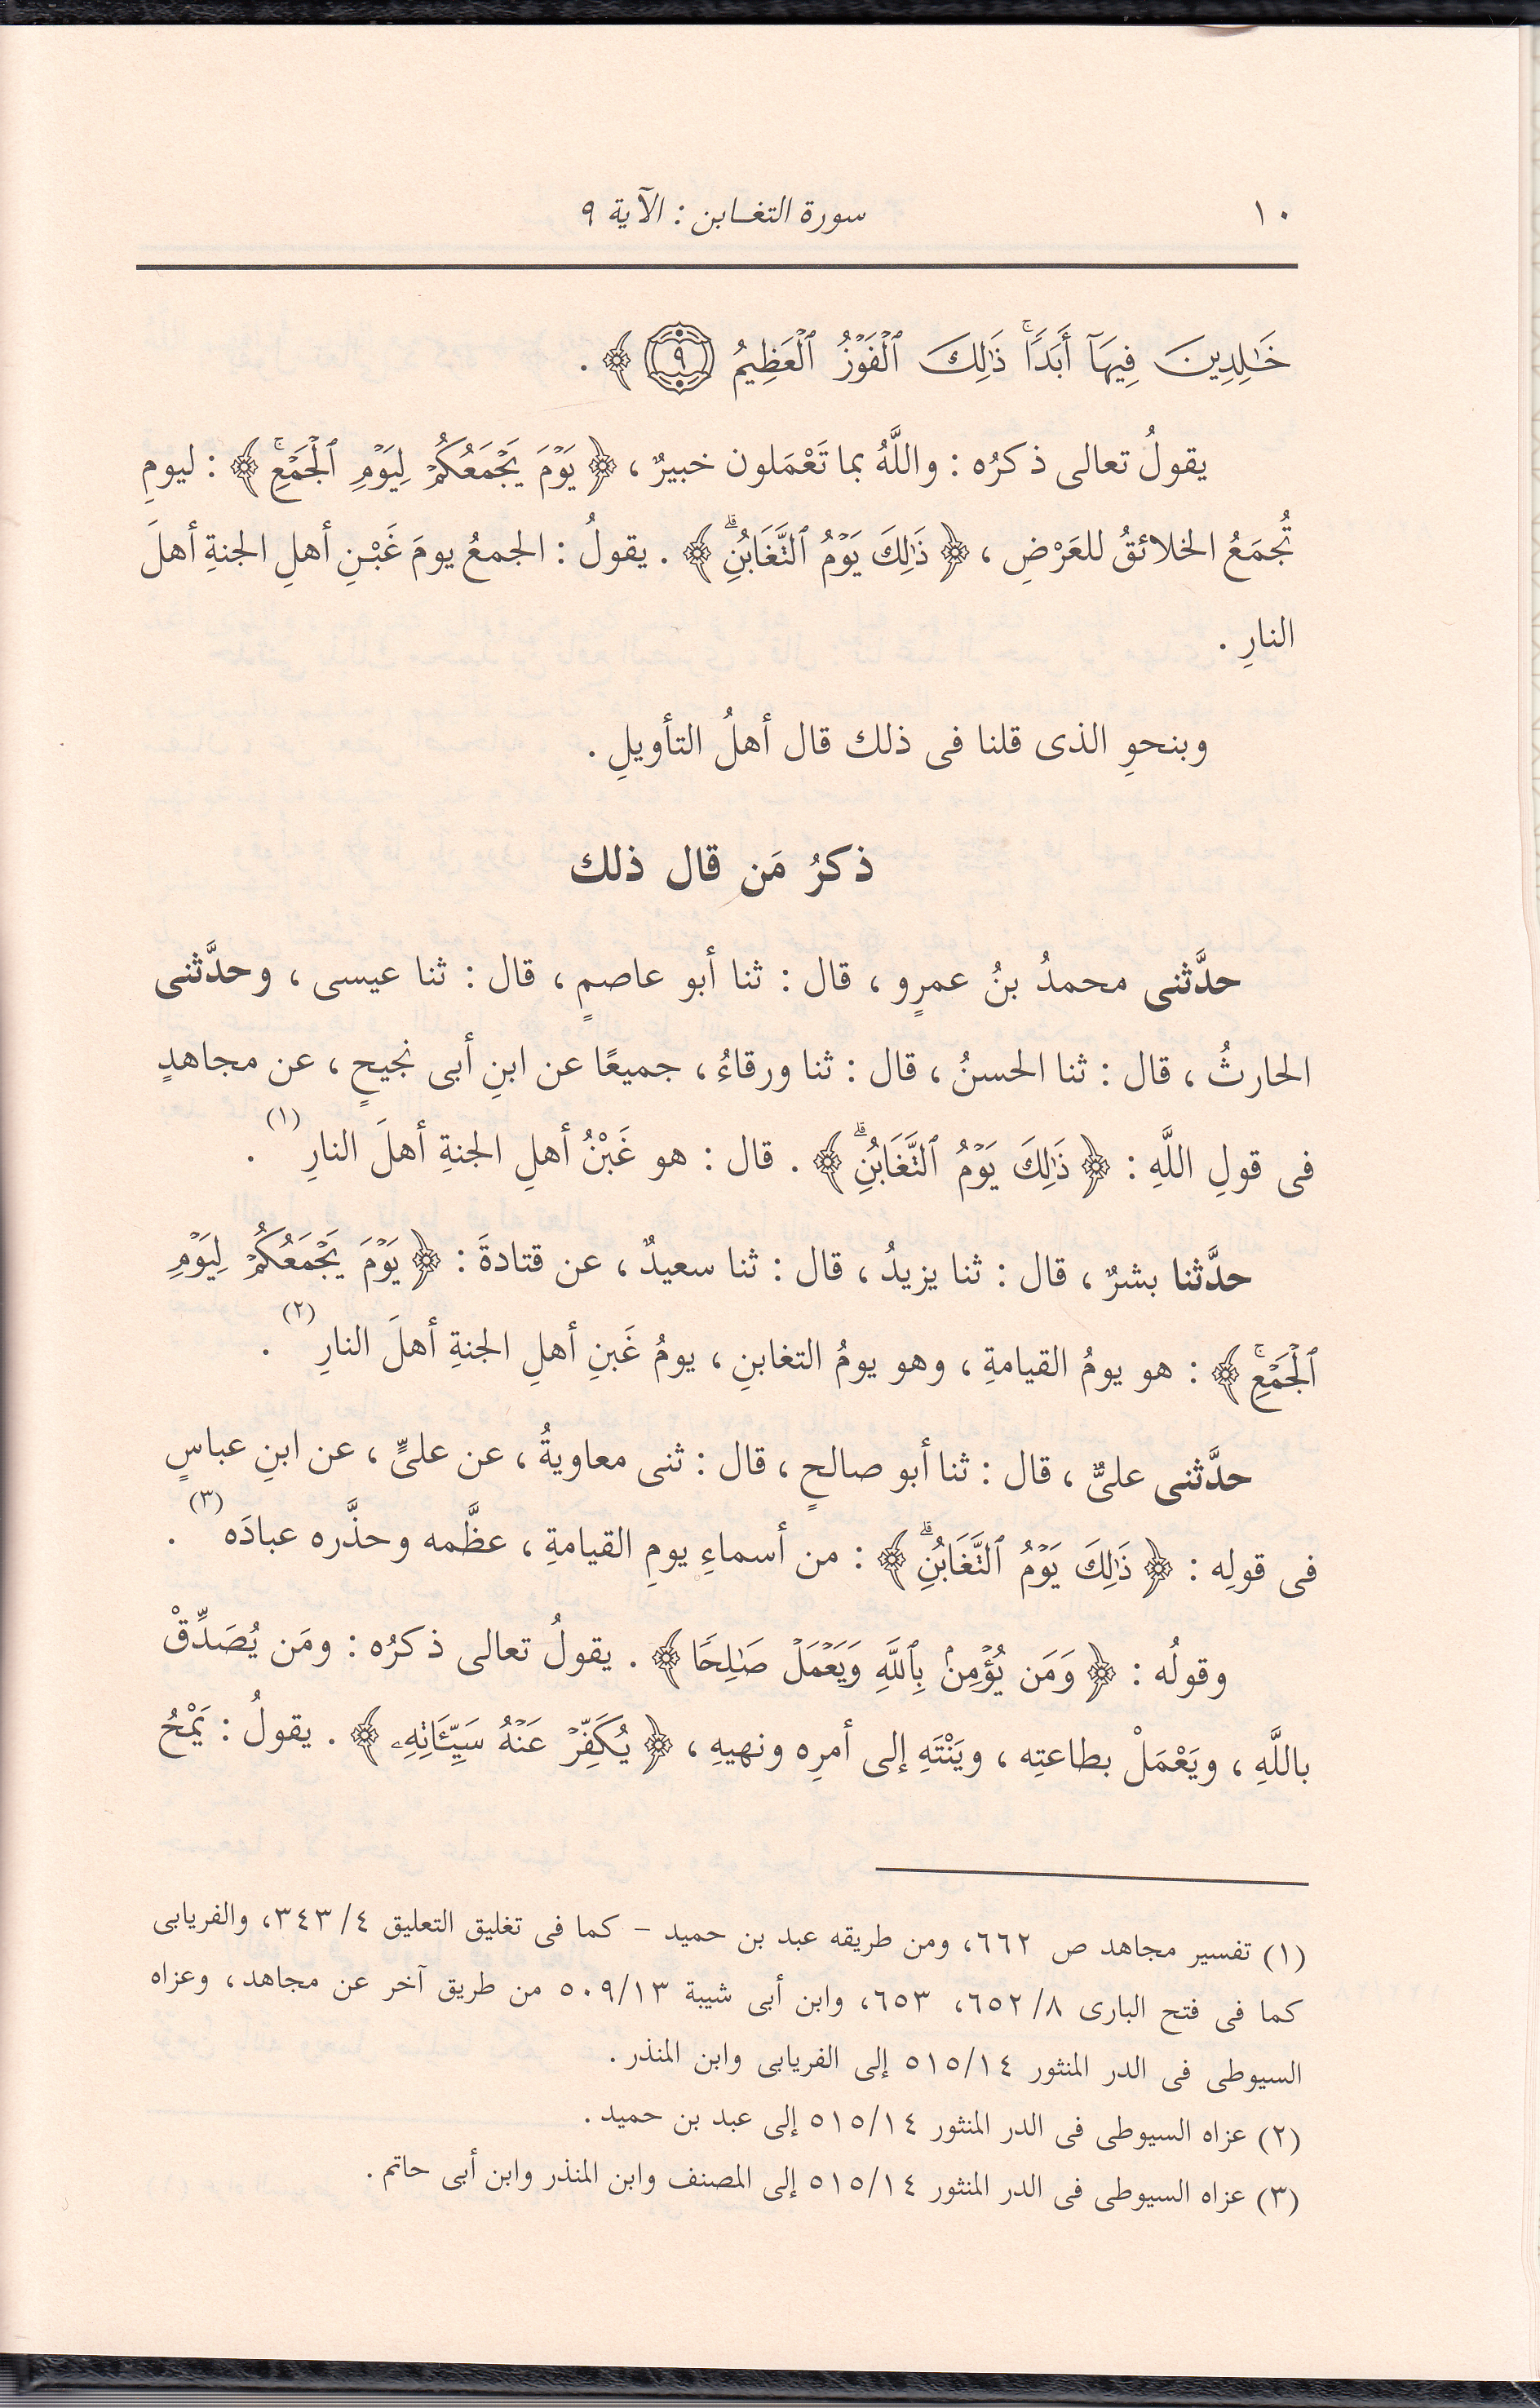 ١٠
سورة التغـابن : الآية ٩
خَـٰلِدِينَ فِيهَآ أَبَدًاۚ ذَٰلِكَ ٱلْفَوْزُ ٱلْعَظِيمُ ٩ ﴾ .
يقولُ تعالى ذكرُه : واللَّهُ بما تَعْمَلون خبيرٌ ، ﴿ يَوْمَ يَجْمَعُكُمْ لِيَوْمِ ٱلْجَمْعِۚ ﴾ : ليومِ
تُجمَعُ الخلائقُ للعَرْضِ ، ﴿ ذَٰلِكَ يَوْمُ ٱلتَّغَابُنِۗ ﴾ . يقولُ : الجمعُ يومَ غَبْنِ أهلِ الجنةِ أهلَ
النارِ .
وبنحوِ الذى قلنا فى ذلك قال أهلُ التأويلِ .
ذكرُ مَن قال ذلك
حدَّثنى محمدُ بنُ عمرٍو ، قال : ثنا أبو عاصمٍ ، قال : ثنا عيسى ، وحدَّثنى
الحارثُ ، قال : ثنا الحسنُ ، قال : ثنا ورقاءُ ، جميعًا عن ابنِ أبى نجيحٍ ، عن مجاهدٍ
فى قولِ اللَّهِ : ﴿ ذَٰلِكَ يَوْمُ ٱلتَّغَابُنِۗ ﴾ . قال : هو غَبْنُ أهلِ الجنةِ أهلَ النارِ (١) .
حدَّثنا بشرٌ ، قال : ثنا يزيدُ ، قال : ثنا سعيدٌ ، عن قتادةَ : ﴿ يَوْمَ يَجْمَعُكُمْ لِيَوْمِ
ٱلْجَمْعِۚ ﴾ : هو يومُ القيامةِ ، وهو يومُ التغابنِ ، يومُ غَبنِ أهلِ الجنةِ أهلَ النارِ (٢) .
حدَّثنى علىٌّ ، قال : ثنا أبو صالحٍ ، قال : ثنى معاويةُ ، عن علىٍّ ، عن ابنِ عباسٍ
فى قولِه : ﴿ ذَٰلِكَ يَوْمُ ٱلتَّغَابُنِۗ ﴾ : من أسماءِ يومِ القيامةِ ، عظَّمه وحذَّره عبادَه (٣) .
وقولُه : ﴿ وَمَن يُؤْمِنۢ بِٱللَّهِ وَيَعْمَلْ صَـٰلِحًا ﴾ . يقولُ تعالى ذكرُه : ومَن يُصَدِّقْ
باللَّهِ ، ويَعْمَلْ بطاعتِه ، ويَنْتَهِ إلى أمرِه ونهيِهِ ، ﴿ يُكَفِّرْ عَنْهُ سَيِّـَٔاتِهِۦ ﴾ . يقولُ : يَمْحُ
(١) تفسير مجاهد ص ٦٦٢، ومن طريقه عبد بن حميد – كما فى تغليق التعليق ٣٤٣/٤، والفريابى
كما فى فتح البارى ٦٥٢/٨، ٦٥٣، وابن أبى شيبة ٥٠٩/١٣ من طريق آخر عن مجاهد، وعزاه
السيوطى فى الدر المنثور ٥١٥/١٤ إلى الفريابى وابن المنذر .
(٢) عزاه السيوطى فى الدر المنثور ٥١٥/١٤ إلى عبد بن حميد .
(٣) عزاه السيوطى فى الدر المنثور ٥١٥/١٤ إلى المصنف وابن المنذر وابن أبى حاتم .